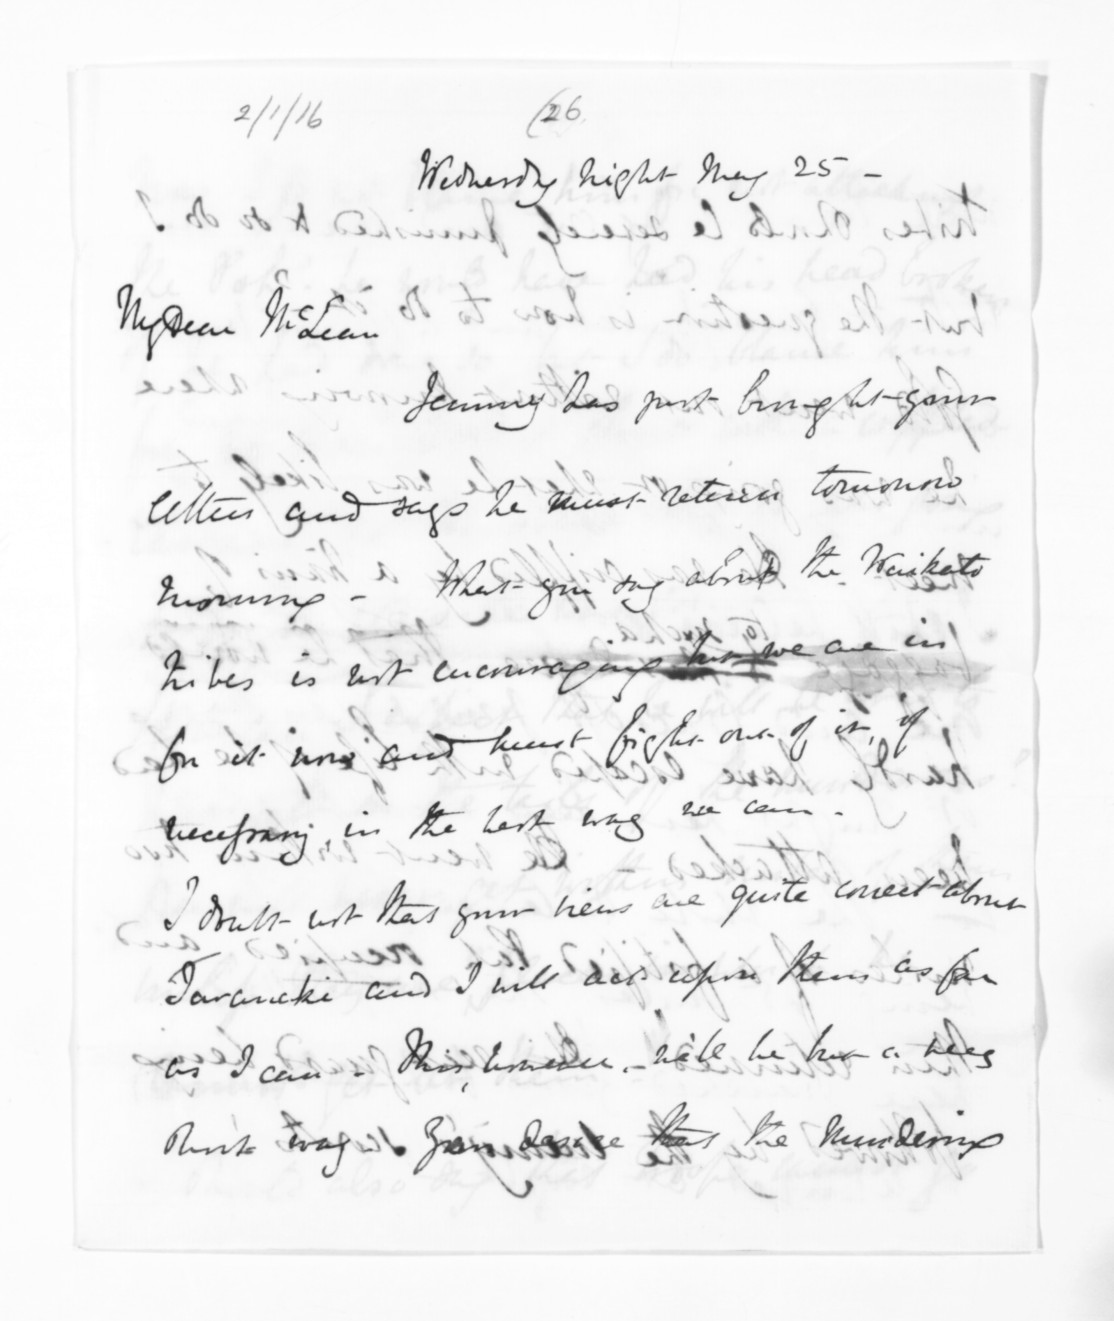 2/1/16
(26.
Wednesday night May 25 -
My Dear McLean
Jemmy has just brought your
letters and says he must return tomorrow
morning - What you say about the Waikato
tribes is not encouraging but we are in
for it now and must fight out of it, if
necessary, in the best way we can -
I doubt not that your views are quite correct about
Taranaki and I will act upon them as far
as I can - This, however, will be but a very
short way Your desire that the murdering